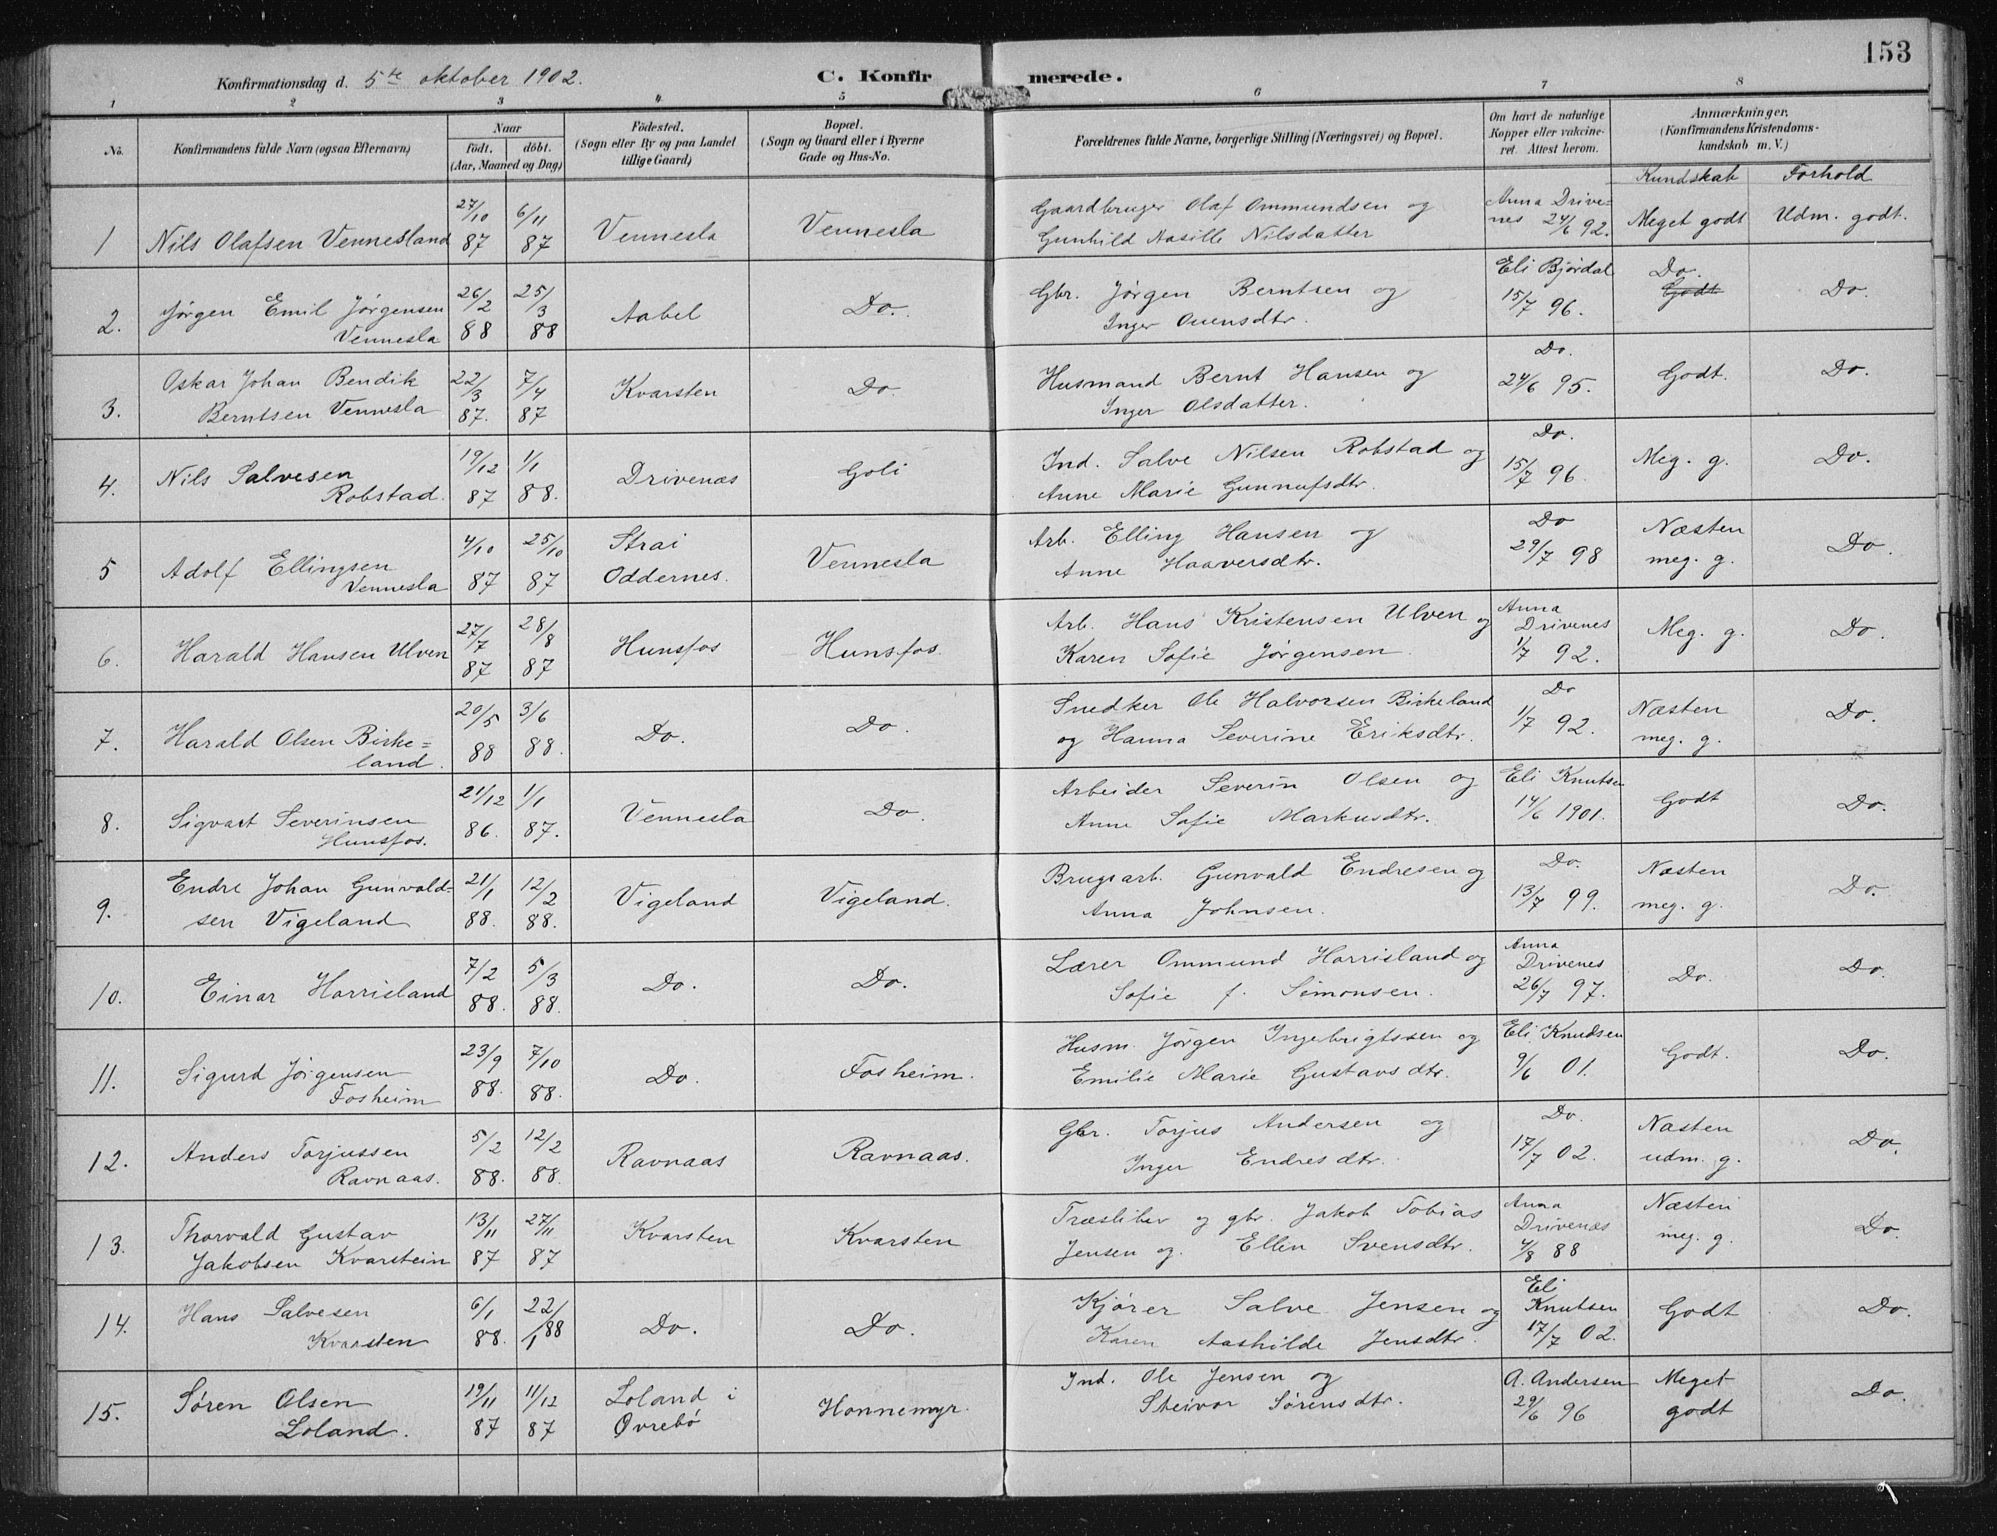 153
Konfirmationsdag d. 5te oktober 1902.
C. Konfirmerede.
1 2 3 4 5 6 7 8
No.
Konfirmandens fulde Navn (ogsaa Efternavn)
Naar
Födt. döbt.
(Aar, Maaned og Dag)
Födested.
(Sogn eller By og paa Landet
tillige Gaard)
Bopæl.
(Sogn og Gaard eller i Byerne
Gade og Hus-No.
Forældrenes fulde Navne, borgerlige Stilling (Næringsvei) og Bopæl.
Om havt de naturlige
Kopper eller vakcine-
ret. Attest herom.
Anmærkninger.
(Konfirmandens Kristendoms-
kundskab m. V.)
Kundskab Forhold
1 Nils Olafsen Vennesland
27/10 87
6/11 87
Vennesla
Vennesla
Gaardbruger Olaf Ommundsen og
Gunhild Aasille Nilsdatter
Anna Drive-
nes 24/6 92.
Meget godt
Udm. godt.
2. Jørgen Emil Jørgensen
Vennesla
26/2 88
25/3 88
Aabel
Do.
Gbr. Jørgen Berntsen og
Inger Ouensdtr.
Eli Bjørdal
15/7 96.
Do.
Godt
Do.
3. Oskar Johan Bendik
Berntsen Vennesla
22/3 87.
7/4 87
Kvarsten
Do.
Husmand Bernt Hansen og
Inger Olsdatter.
Do.
24/6 95.
Godt.
Do.
4. Nils Salvesen
Robstad.
19/12 87
1/1 88.
Drivenæs
Goli
Ind. Salve Nilsen Robstad og
Anne Marie Gunnufsdtr.
Do.
15/7 96.
Meg. g.
Do.
5 Adolf Ellingsen
Vennesla
4/10 87
25/10 87
Strai
Oddernes.
Vennesla
Arb. Elling Hansen og
Anne Haaversdtr.
Do
29/7 98
Næsten
meg. g.
Do.
6. Harald Hansen Ulven
27/7 87
28/8 87
Hunsfos
Hunsfos.
Arb. Hans Kristensen Ulven og
Karen Sofie Jørgensen.
Anna
Drivenes
1/7 92.
Meg. g.
Do.
7. Harald Olsen Birke=
land.
20/5 88
3/6 88.
Do.
Do.
Snedker Ole Halvorsen Birkeland
og Hanna Severine Eriksdtr.
Do
1/7 92.
Næsten
meg. g.
Do.
8. Sigvart Severinsen
Hunsfos.
21/12 86.
1/1 87.
Vennesla
Do.
Arbeider Severin Olsen og
Anne Sofie Markusdtr.
Eli Knutsen
14/6 1901.
Godt
Do.
9. Endre Johan Gunvald-
sen Vigeland
21/1 88.
12/2 88.
Vigeland
Vigeland.
Brugsarb. Gunvald Endresen og
Anna Johnsen.
Do.
13/7 99.
Næsten
meg. g.
Do.
10. Einar Horrisland
7/2 88.
5/3 88.
Do.
Do.
Lærer Ommund Horrisland og
Sofie f. Simonsen.
Anna
Drivenes
26/7 97.
Do.
Do.
11. Sigurd Jørgensen
Fosheim
23/9 88.
7/10 88.
Do.
Fosheim.
Husm. Jørgen Ingebrigtssen og
Emilie Marie Gustavsdtr.
Eli Knudsen
9/6 01.
Godt.
Do.
12. Anders Torjussen
Ravnaas.
5/2 88.
12/2 88.
Ravnaas
Ravnaas.
Gbr. Torjus Andersen og
Inger Endresdtr.
Do.
17/7 02.
Næsten
udm. g.
Do.
13. Thorvald Gustav
Jakobsen Kvarstein
13/11 87
27/11 87
Kvarsten
Kvarsten
Træsliber og gbr. Jakob Tobias
Jensen og Ellen Svensdtr.
Anna
Drivenæs
4/8 88
Næsten
meg. g.
Do.
14. Hans Salvesen
Kvarsten
6/1 88.
22/1 88
Do.
Do.
Kjører Salve Jensen og
Karen Aashilde Jensdtr.
Eli
Knutsen
17/7 02.
Godt
Do.
15. Søren Olsen
Loland.
19/11 87
11/12 87
Loland i
Øvrebø
Honnemyr.
Ind. Ole Jensen og
Steivor Sørensdtr.
A. Andersen
29/6 96
Meget
godt
Do.